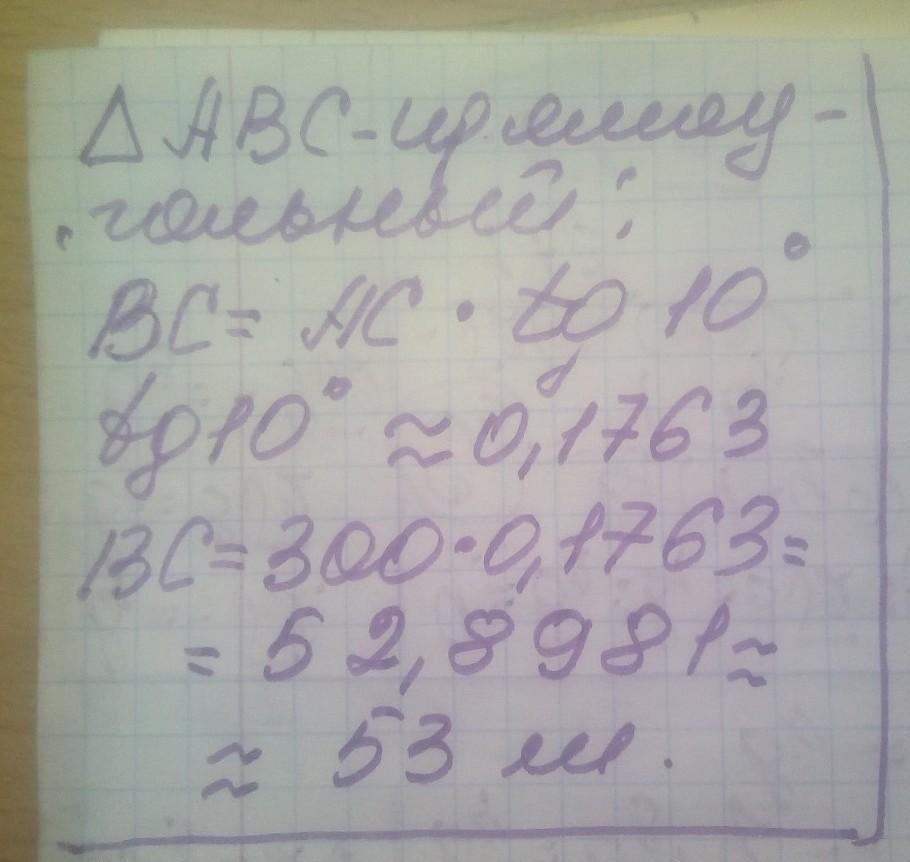 △ABC-прямоу-
гольный:
BC= AC · tg 10°
tg10° ≈0,1763
BC=300·0,1763=
= 52,8981≈
≈ 53 м.